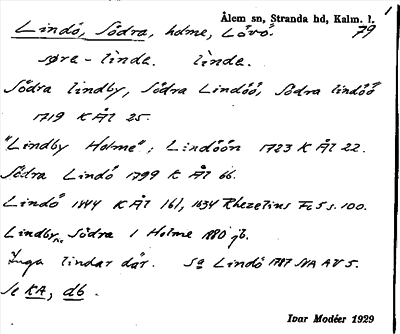 Ålem sn, Stranda hd, Kalm. l.
Lindö, Södra, holme, Lövö. 79
søra-linde. linde.
Södra lindby, Södra Lindöö, Södra lindöö
1719 K Ål 25.
"Lindby Holme"; Lindöön 1723 K Ål 22.
Södra Lindö 1799 K Ål 66.
Lindö 1444 K Ål 161, 1634 Rhezelius Fc5 s. 100.
Lindby, Södra 1 Holme 1880 jb.
Inga lindar där. Sa Lindö 1787 SNA AV 5.
Se KA, db.
Ivar Modéer 1929